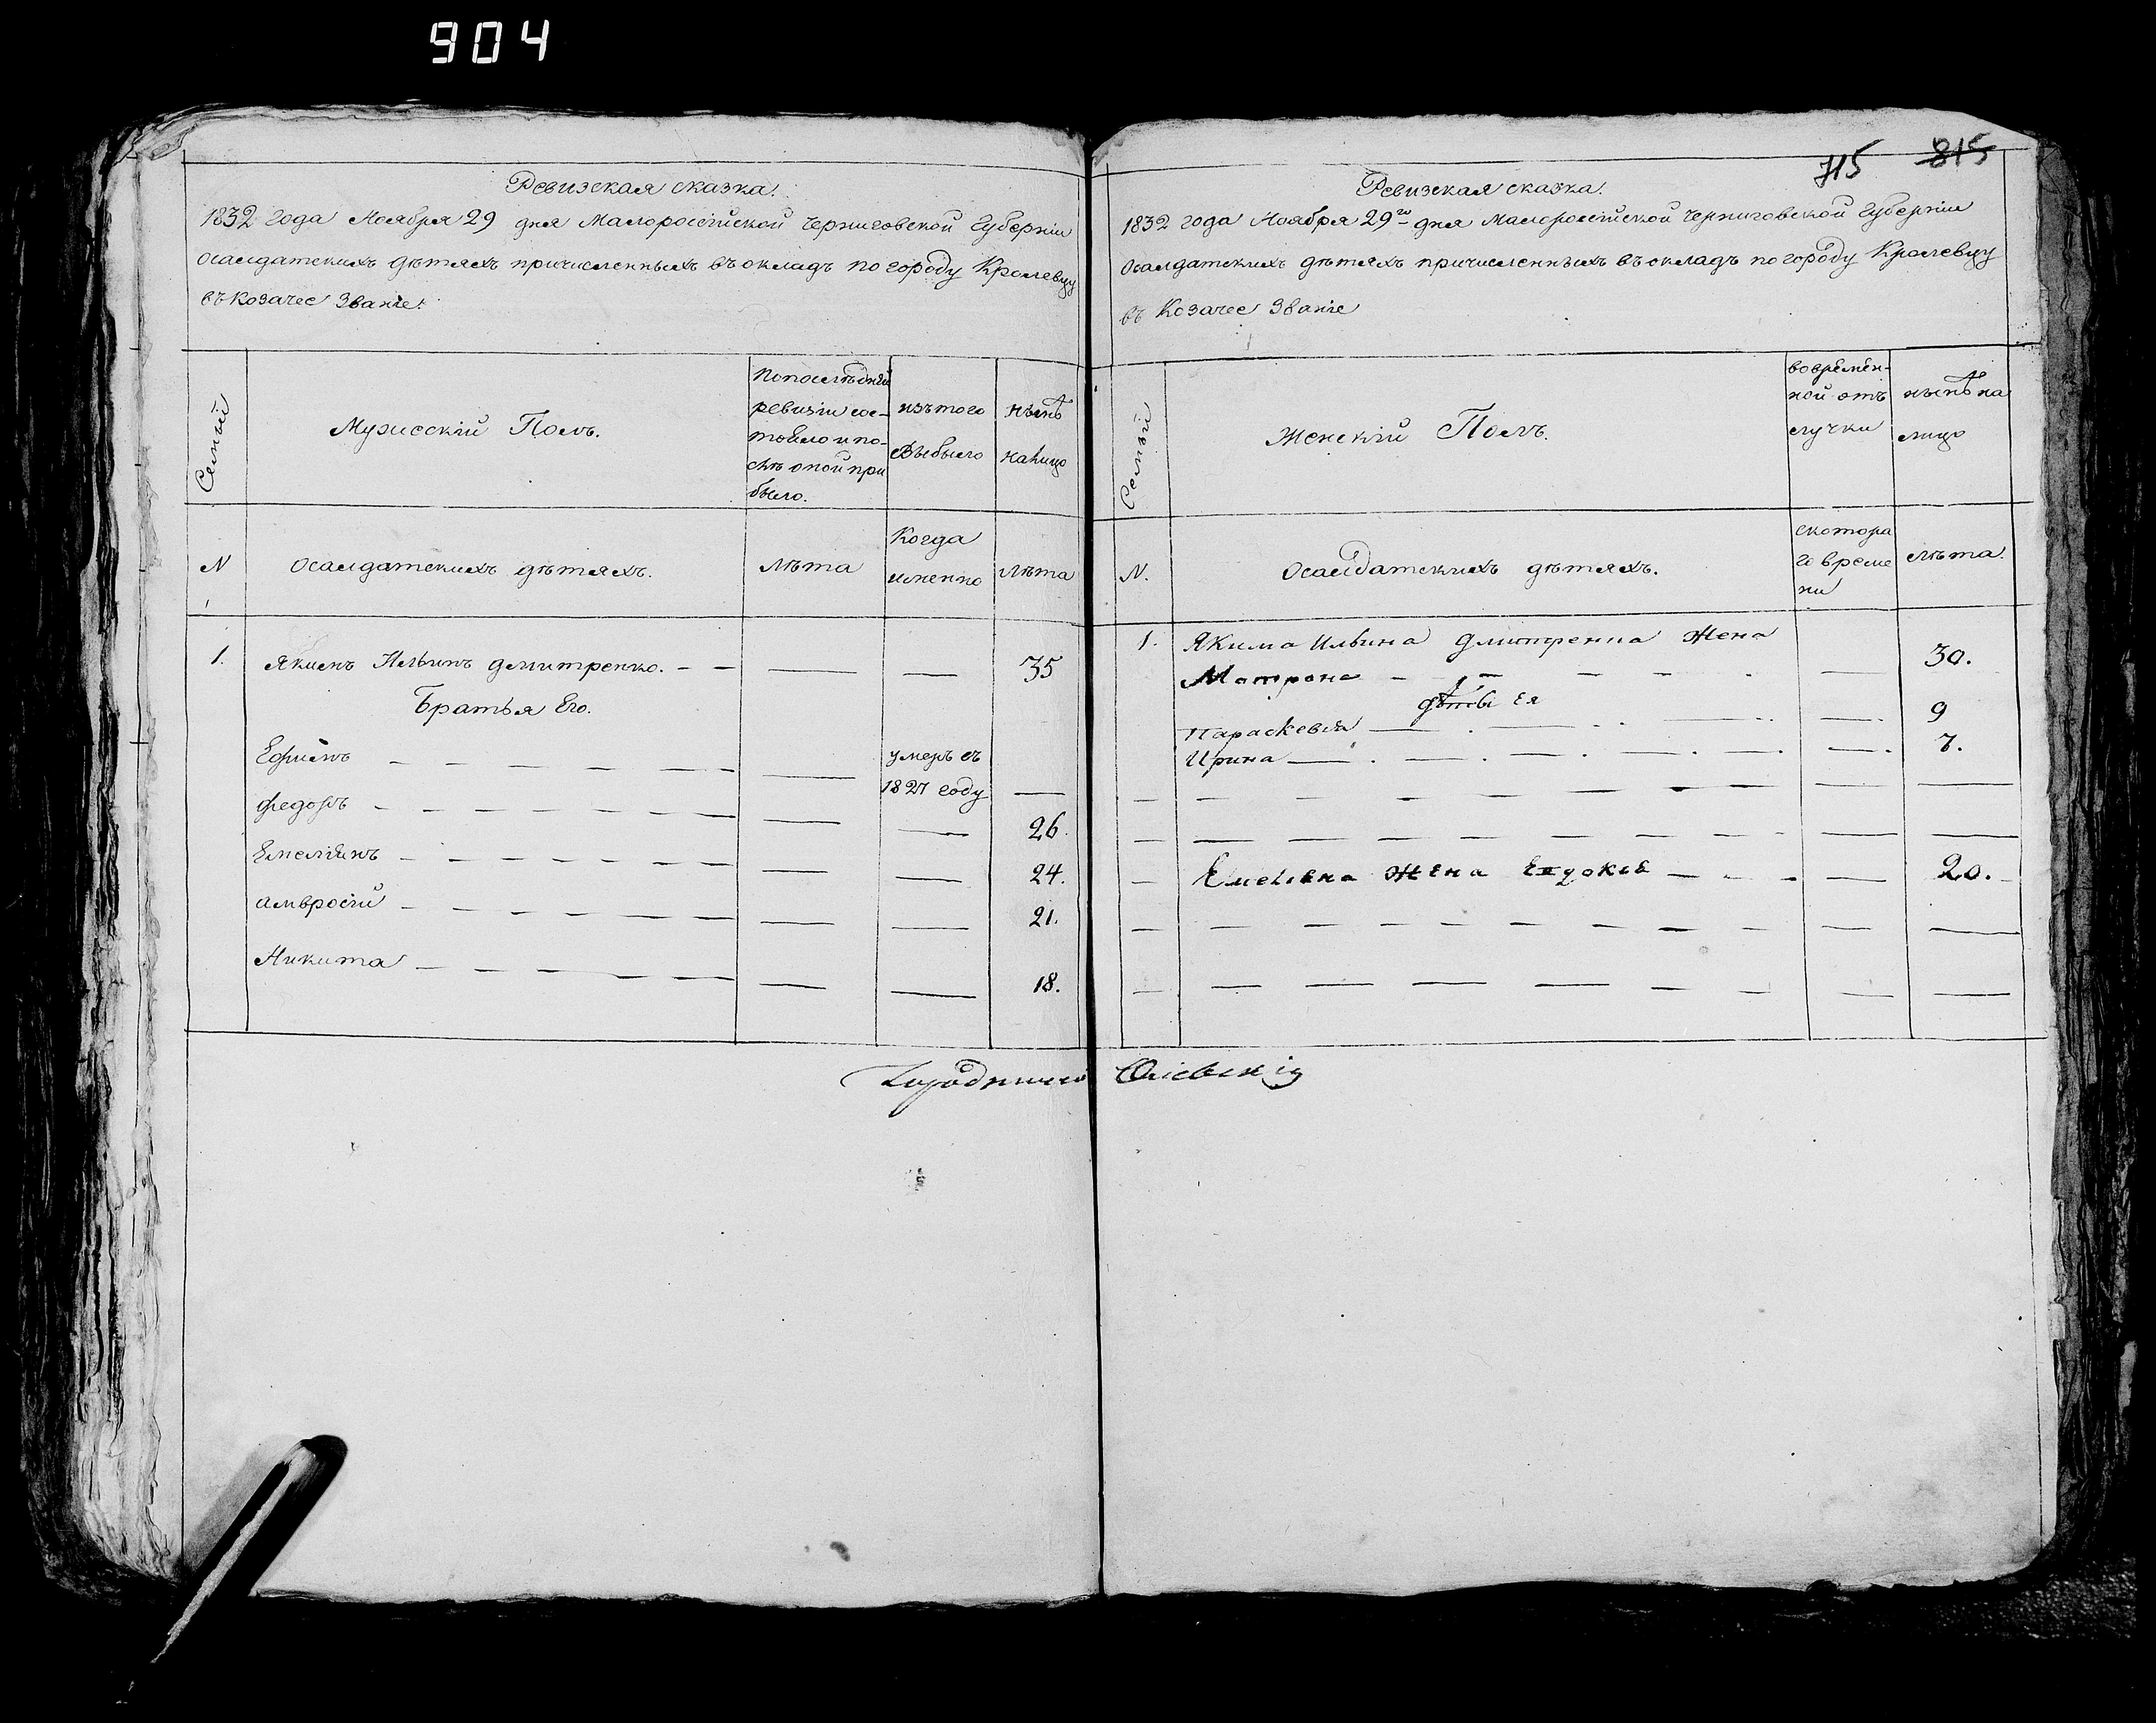 904
Ревизская сказка.
1832 года Ноября 29 дня Малороссійской Черниговской Губерніи
Осалдатскихъ дѣтяхъ причисленныхъ въ окладъ по городу Кролевцу
въ Козачее Званіе.
Семьи
Мужескій Полъ.
Попослѣдней
ревизіи сос-
тояло и по-
слѣ оной при
было.
изътого
Выбыло
нынѣ
налицо
N
Осалдатскихъ дѣтяхъ.
Лѣта
Когда
именно
Лѣта
1. Якимъ Ильинъ Дмитренко. 35
Братья Его.
Ефимъ умеръ въ
1827 году
Федоръ 26.
Емеліянъ 24.
Амвросій 21.
Никита 18.
Городничій
715 815
Ревизская сказка.
1832 года Ноября 29го дня Малороссійской Черниговской Губерніи
Осалдатскихъ дѣтяхъ причисленныхъ въ окладъ по городу Кролевцу
въ Козачее Званіе
Семьи
Женскій Полъ.
вовремен-
ной отъ
лучки
нынѣ на
лицо
N.
Осалдатскихъ дѣтяхъ.
скотора
го време
ни
Лѣта.
1. Якима Ильина Дмитренка Жена
Матрона 30.
дѣти Ея
Параскевія 9
Ирина 7.
Жена Евдокія 20.